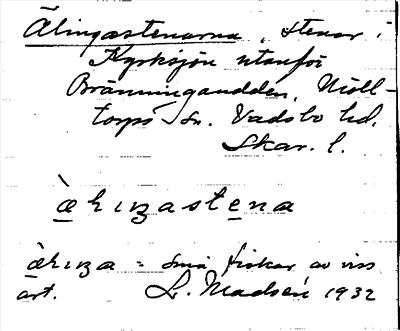 Älingastenarna, stenar i
Kyrksjön utanför
Bränningaudden, Mölltorps
sn. Vadsbo hd.
Skar. l.
œ̀lıŋastena
œ̀lıŋa = små fiskar av viss
art. L. Madsén 1932